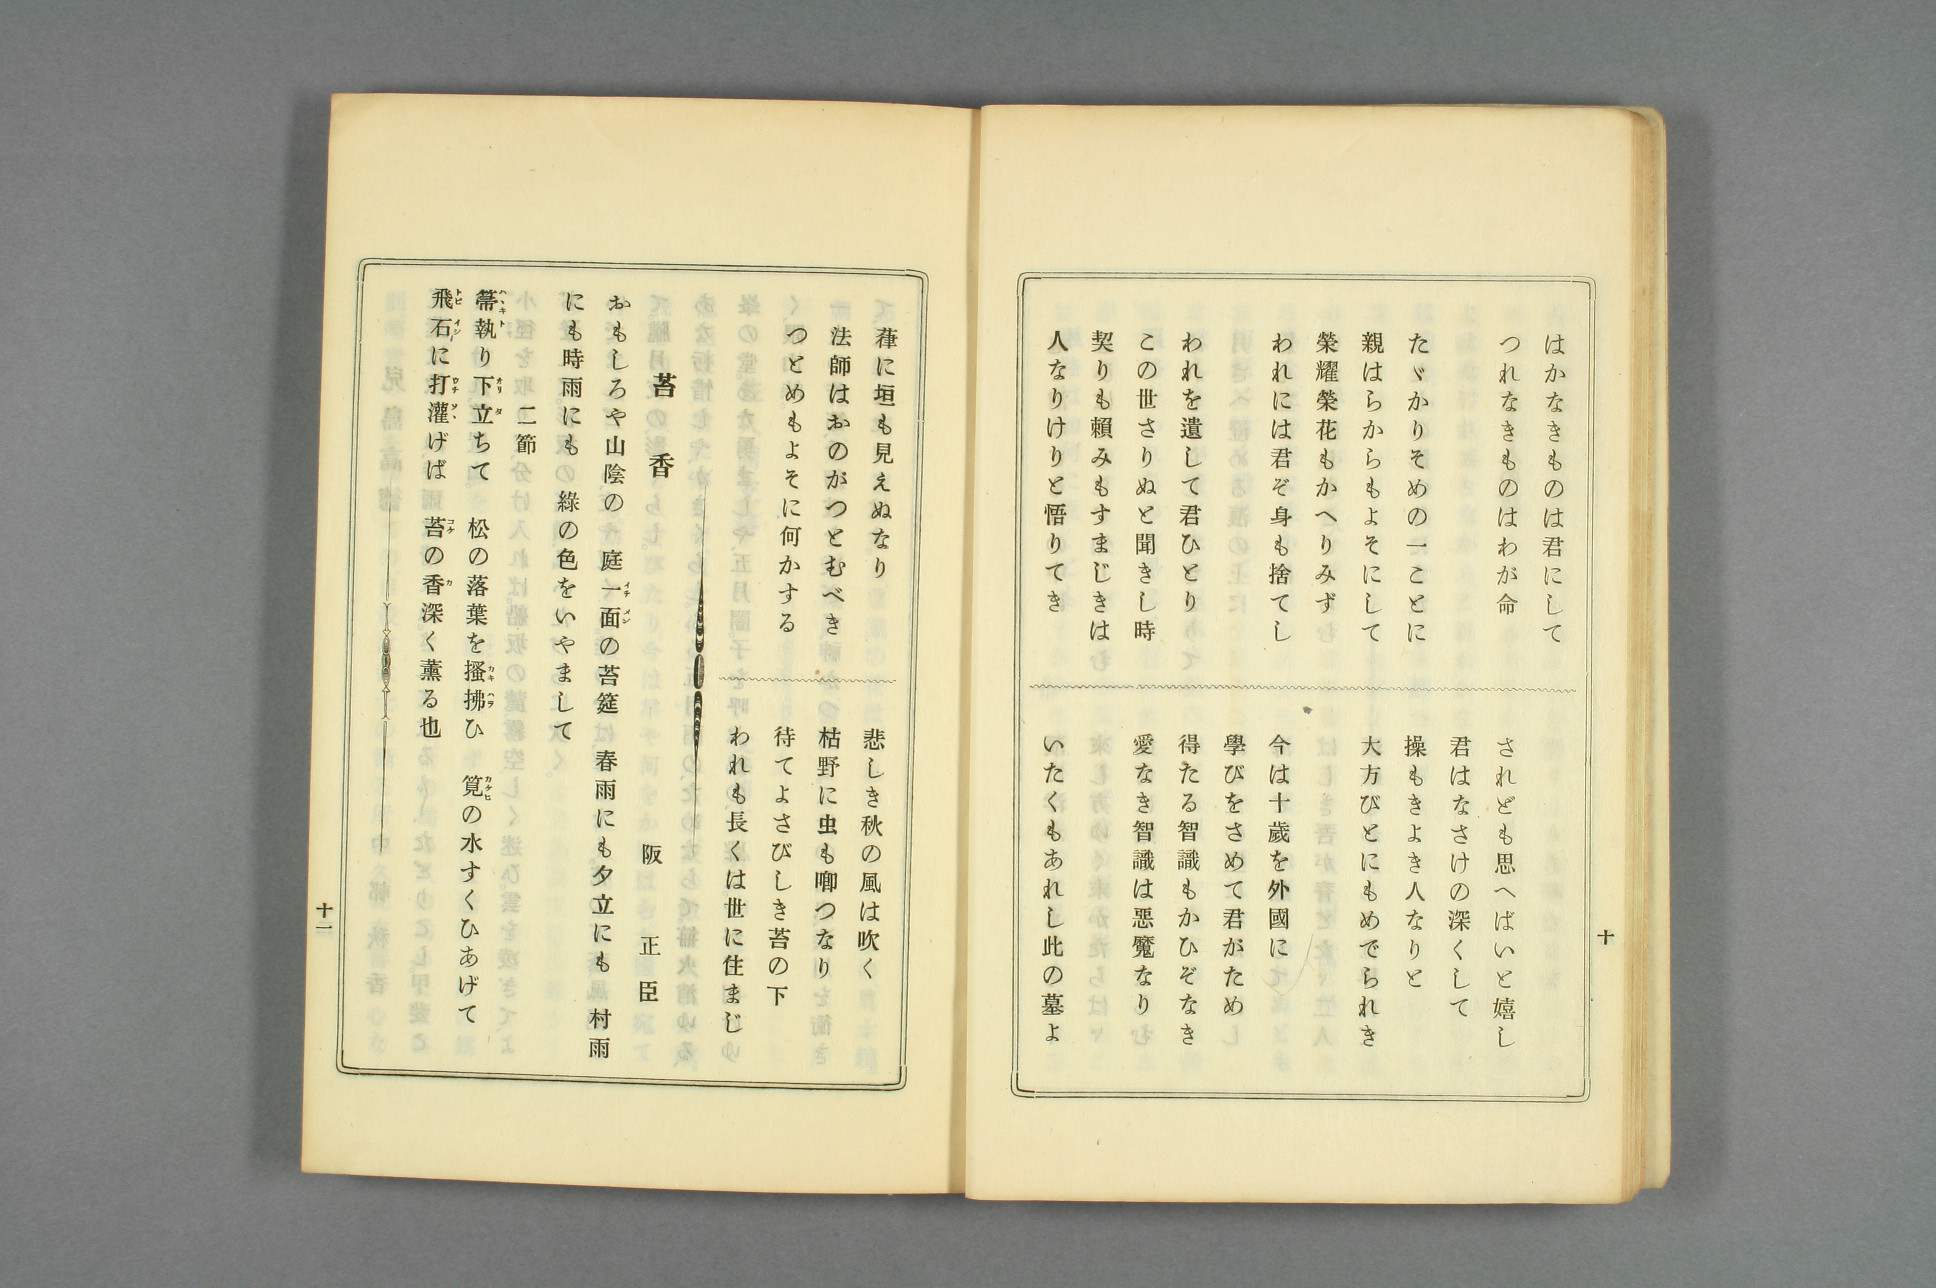 はかなきものは君にして
つれなきものはわが命
たゞかりそめの一ことに
親はらからもよそにして
榮耀榮花もかへりみず
われには君ぞ身も捨てし
われを遺して君ひとり
この世さりぬと聞きし時
契りも賴みもすまじきは
人なりけりと悟りてき
されども思へばいと嬉し
君はなさけの深くして
操もきよき人なりと
大方びとにもめでられき
今は十歲を外國に
學びをさめて君がため
得たる智識もかひぞなき
愛なき智識は惡魔なり
いたくもあれし此の墓よ
十
葎に垣も見えぬなり
法師はおのがつとむべき
つとめもよそに何かする
悲しき秋の風は吹く
枯野に虫も啣つなり
待てよさびしき苔の下
われも長くは世に住まじ
苔香
阪正臣
おもしろや山陰の 庭一面の苔筵 春雨にも夕立にも 村雨
にも時雨にも 綠の色をいやまして
二節
箒執り下立ちて 松の落葉を搔拂ひ 筧の水すくひあげて
飛石に打灌げば 苔の香深く薰る也
十一